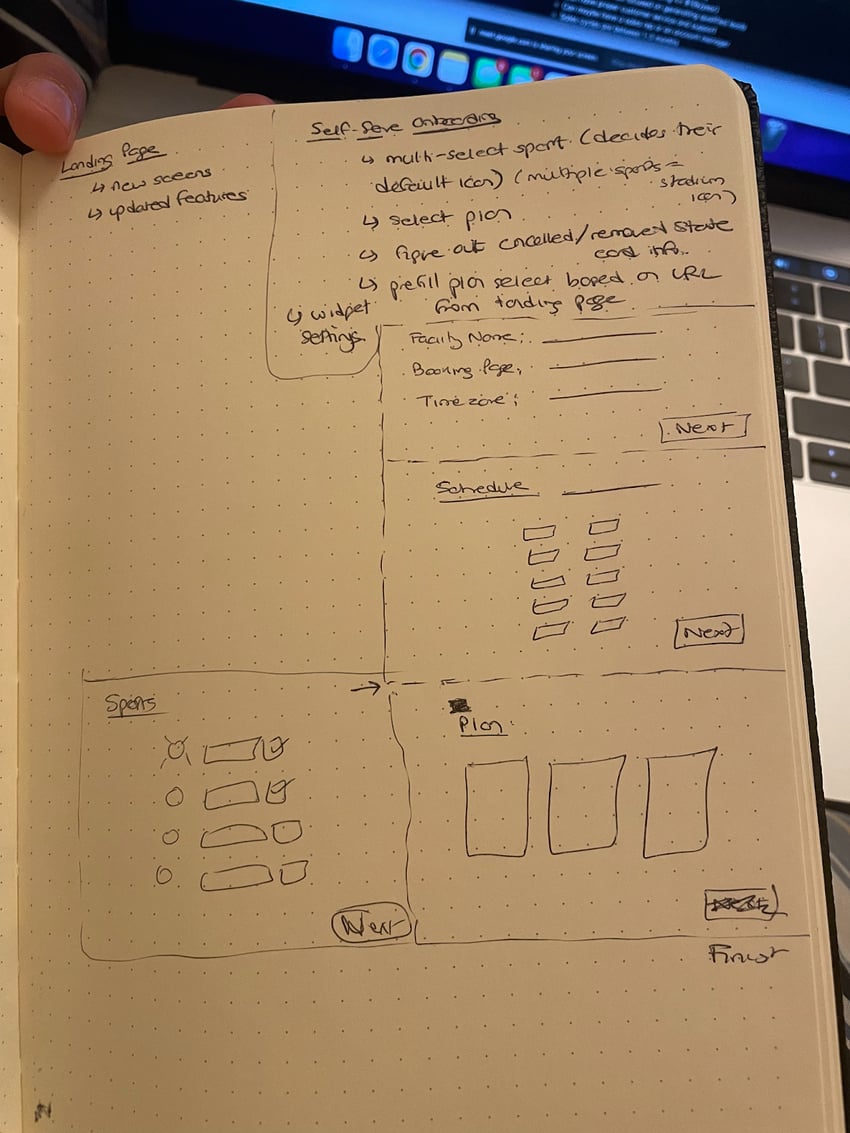 Landing Page
↳ new screens
↳ updated features
Self-Serve Onboarding
↳ multi-select sport (decides their
default icon) (multiple sports =
stadium
icon)
↳ select plan
↳ figure out cancelled/removed state
card info.
↳ prefill plan select based on URL
from landing page
↳ widget
settings
Facility Name:
Booking Page:
Timezone:
Next
Schedule
Next
Sports
Next
Plan
Finish